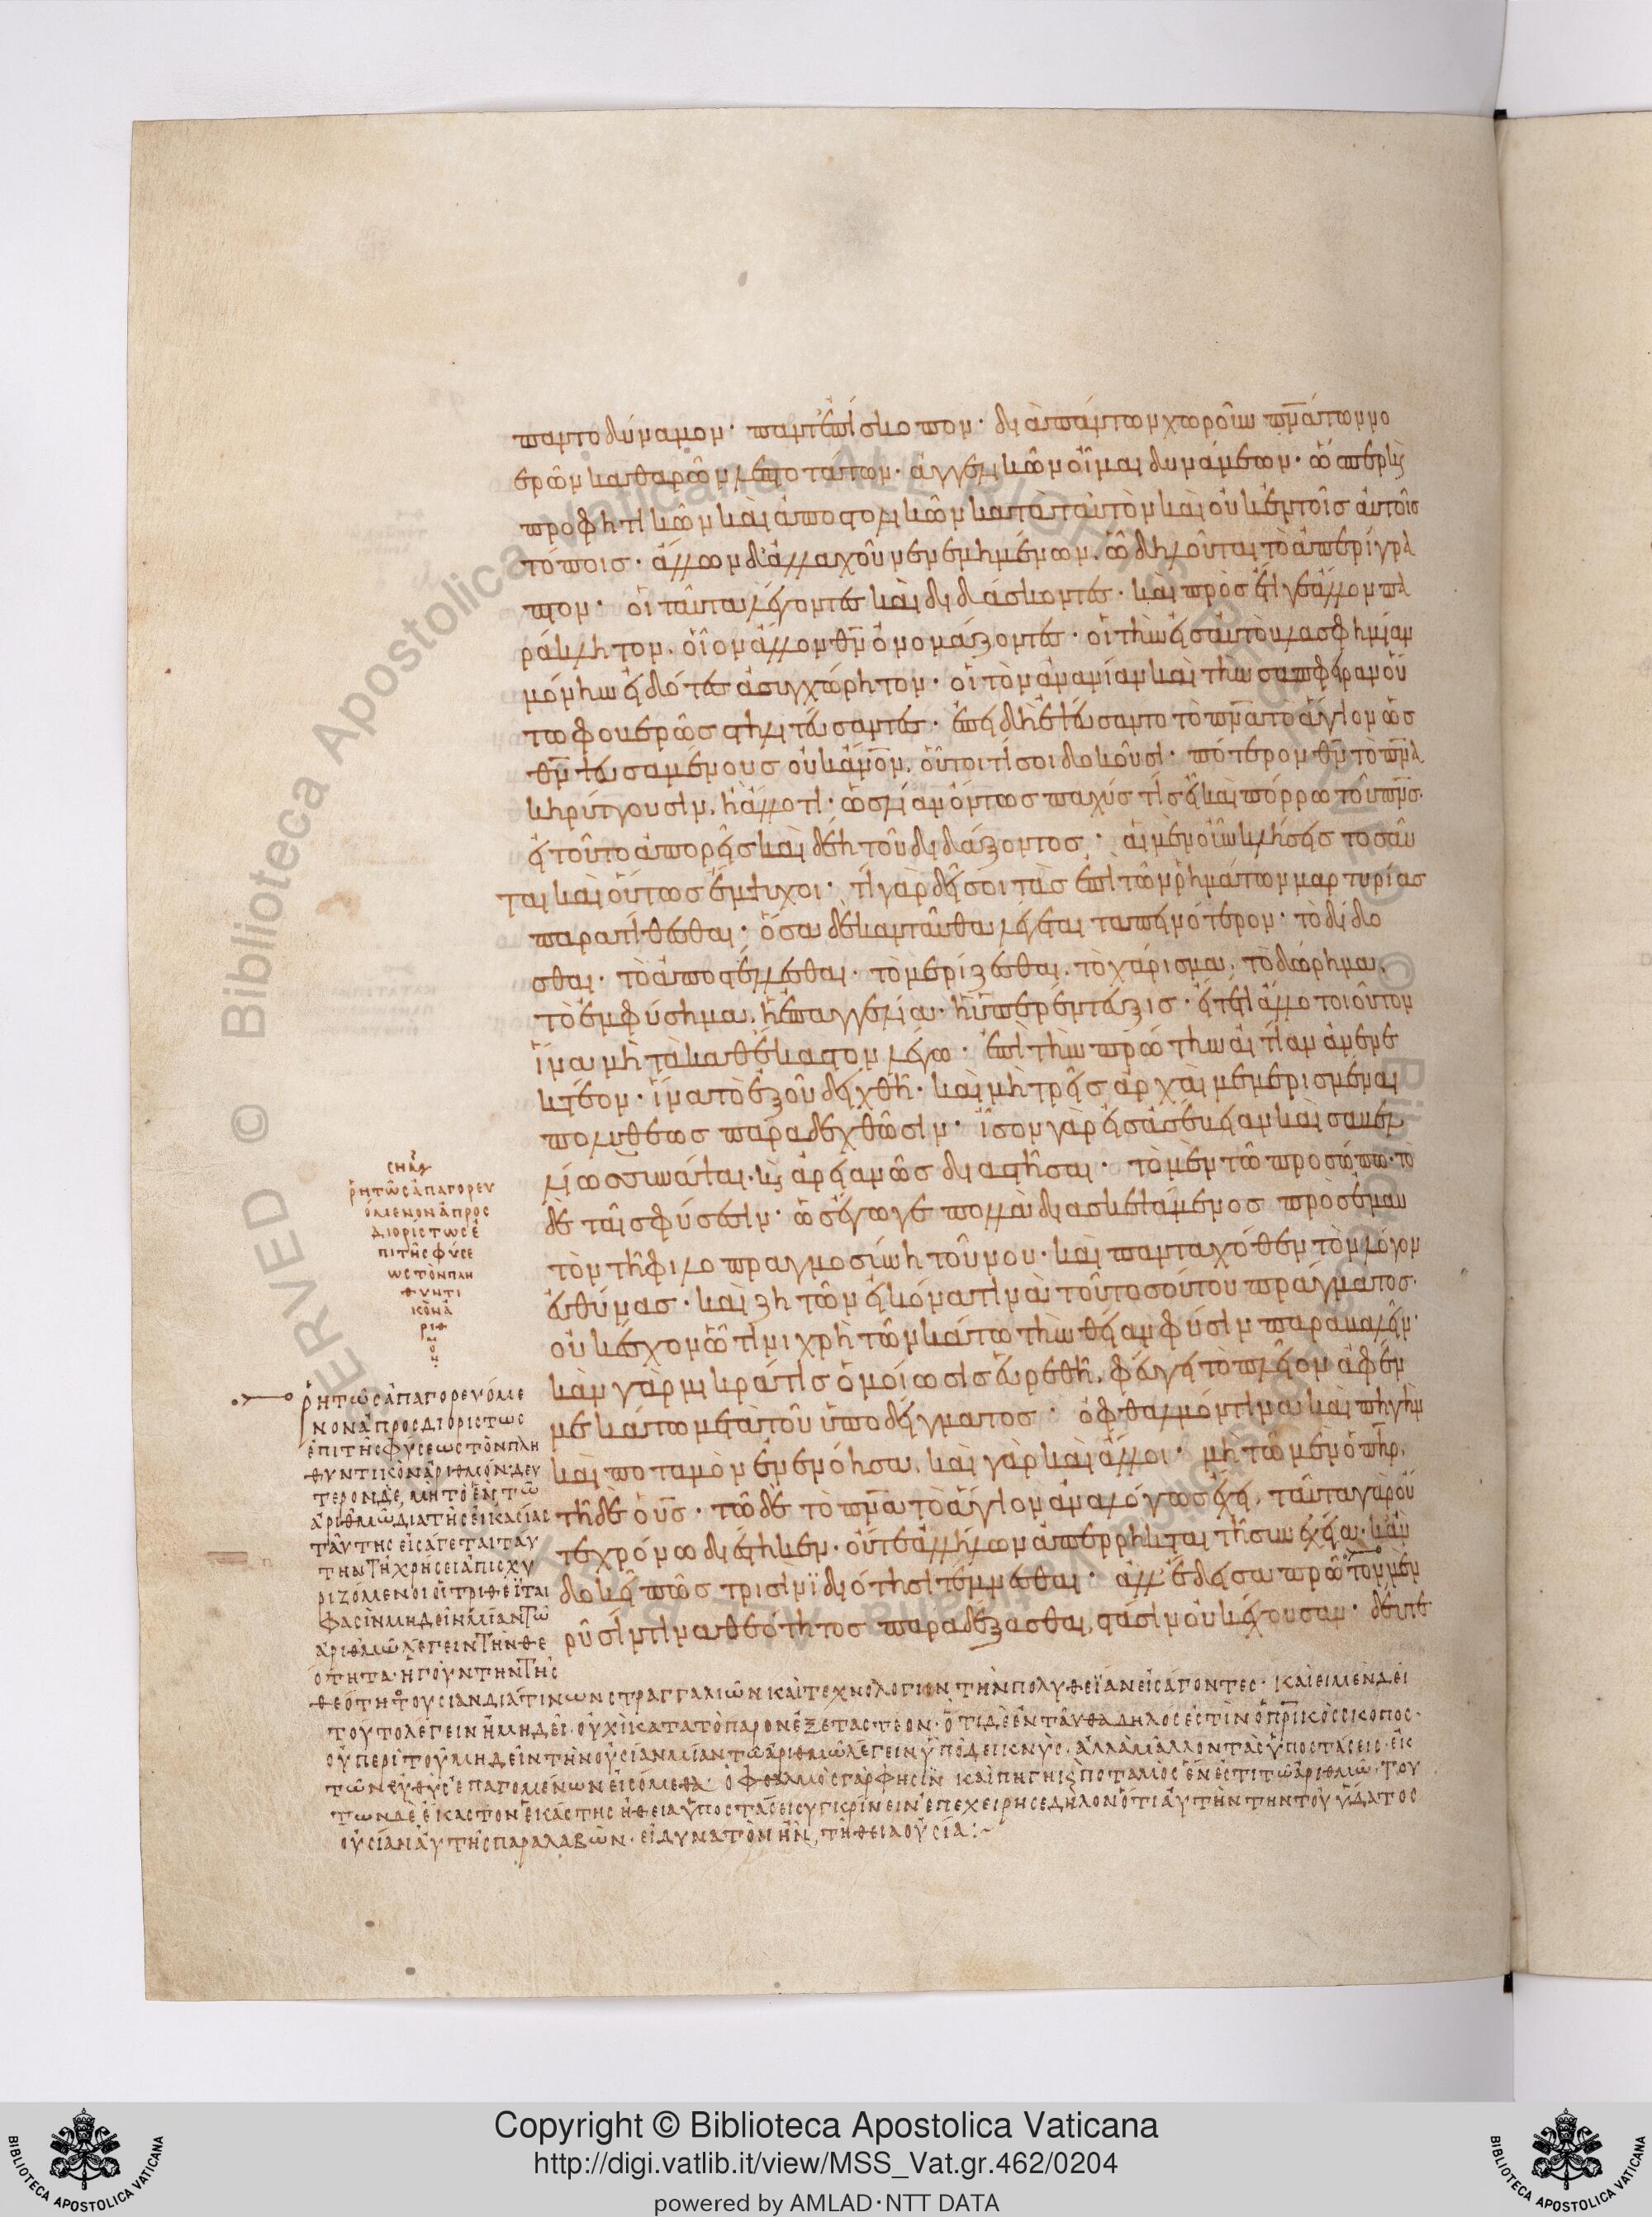 παντοδύναμον· παντεπίσκοπον· διαπάντων χωροῦν πν̅άτων νο
ερῶν καθαρῶν λεπτοτάτων· ἀγγελικῶν οἶμαι δυνάμεων· ὥσπερ κ(αὶ)
προφητικῶν καὶ ἀποστολικῶν κατὰ ταὐτὸν καὶ οὐκ ἐν τοῖς αὐτοῖς
τόποις· ἄλλων δ' ἀλλαχοῦ νενεμημένων. ᾧ δηλοῦται τὸ ἀπερίγρα
πτον· οἱ ταῦτα λέγοντες καὶ διδάσκοντες· καὶ πρὸς ἔτι γε ἄλλον πα
ράκλητον, οἷον ἄλλον θν̅ ὀνομάζοντες· οἱ τὴν εἰς αὐτὸ βλασφημίαν
μόνην εἰδότες ἀσυγχώρητον· οἱ τὸν ἀνανίαν καὶ τὴν σαπφείραν οὕ
τω φοβερῶς στηλιτεύσαντες· ἐπειδὴ ἐψεύσαντο τὸ πν̅α τὸ ἅγιον ὡς
θν̅ ψευσαμένους οὐκ ἄν̅ον̅. οὗτοι τί σοι δοκοῦσι· πότερον θν̅ τὸ πν̅α
κηρύττουσιν, ἢ ἄλλό τι· ὡς λίαν ὄντως παχύς τις εἶ καὶ πόρρω τοῦ πν̅ς·
εἰ τοῦτο ἀπορεῖς καὶ δέῃ τοῦ διδάξοντος· αἱ μὲν οὖν κλήσεις τοσαῦ
ται καὶ οὕτως ἔμψυχοι· τί γὰρ δεῖ σοι τὰς ἐπὶ τῶν ῥημάτων μαρτυρίας
παρατίθεσθαι· ὅσα δὲ κἀνταῦθα λέγεται ταπεινότερον· τὸ δίδο
σθαι· τὸ ἀποστέλλεσθαι· τὸ μερίζεσθαι. τὸ χάρισμα, τὸ δώρημα,
τὸ ἐμφύσημα, ἡ ἐπαγγελία· ἡ ὑπερέντευξις· εἴτε τι ἄλλο τοιοῦτον
ἵνα μὴ τὰ καθέκαστον λέγω· ἐπὶ τὴν πρώτην αἰτίαν ἀνενε
κτέον· ἵνα τὸ ἐξ οὗ δειχθῆ· καὶ μὴ τρεῖς ἀρχαὶ μεμερισμέναι
πολυθέως παραδεχθῶσιν· ἴσον γὰρ εἰς ἀσέβειαν καὶ σαβελ
λίως συνάψαι· κ(αὶ) ἀρειανῶς διαστῆσαι· τὸ μὲν τῶ προσώπω· τὸ
δὲ ταῖς φύσεσιν· ὡς ἔγωγε πολλὰ διασκεψάμενος πρὸς ἐμαυ
τὸν τῆ φιλοπραγμοσύνη τοῦ νου· καὶ πανταχόθεν τὸν λόγον
εὐθύνας· καὶ ζητῶν εἰκόνα τινὰ τοῦ τοσούτου πράγματος·
οὐκ ἔσχον ᾧ τινι χρὴ τῶν κάτω τὴν θείαν φύσιν παραβαλεῖν·
κἂν γὰρ μικρά τις ὁμοίωσις εὑρεθῆ, φεύγει τὸ πλεῖον ἀφέν
με κάτω μετὰ τοῦ ὑποδείγματος· ὀφθαλμόν τινα καὶ πηγὴν
καὶ ποταμὸν ἐνενόησα, καὶ γὰρ καὶ ἄλλοι· μὴ τῶ μὲν ὁ πη̅ρ,
τῆ δὲ ὁ υς̅· τῶ δὲ τὸ πν̅α τὸ ἅγιον ἀναλόγως ἔχει, ταῦτα γὰρ οὔ
τε χρόνω διέστηκεν· οὔτε ἀλλήλων ἀπέρρηκται τῆ συνεχεία· κἂν
δοκεῖ πως τρισὶν ἰδιότησι τέμνεσθαι· ἀλλ' ἔδεισα πρῶτον μὲν
ῥύσίν τινα θεότητος παραδέξασθαι, στάσιν οὐκ ἔχουσαν· δεύτε
ση(μείωσαι)
ῥητῶς ἀπαγορευ
όμενον ἀπροσ
διορίστως ἐ
πὶ τῆς φύσε
ως τὸν πλη
θυντι
κὸν ἀ
ριθ
μὸ
ν·
ῥητῶς ἀπαγορευόμε
νον ἀπροσδιορίστως
ἐπὶ τῆς φύσεως τὸν πλη
θυντικὸν ἀριθμόν· δεύ
τερον δὲ, μὴ τὸ ἓν τῶ
ἀριθμῶ διὰ τῆς εἰκασίας
ταύτης εἰσάγεται ταύ
την τῆ χρήσει ἀπισχυ
ριζόμενοι οἱ τριθεῖται
φασὶν μὴ δεῖν μίαν τῶ
ἀριθμῶ λέγειν τὴν θε
ότητα· ἤγουν τὴν τῆς
θεότητο(ς) οὐσίαν διά τινων στραγγαλιῶν καὶ τεχνολογιῶν τὴν πολυθεΐαν εἰσάγοντες· καὶ εἰ μὲν δεῖ
τοῦτο λέγειν ἢ μὴ δεῖ· οὐχὶ κατὰ τὸ παρὸν ἐξεταστέον· ὅτι δὲ ἐνταῦθα δῆλός ἐστιν ὁ πρ̅ικὸς σκοπὸς·
οὐ περὶ τοῦ μὴ δεῖν τὴν οὐσίαν μίαν τῶ ἀριθμῶ λέγειν ὑποδεικνὺς, ἀλλὰ μᾶλλον τὰς ὑποστάσεις· ἐκ
τῶν εὐθὺς ἐπαγομένων εἰσόμεθα· ὀφθαλμὸς γάρ φησιν καὶ πηγὴ κ(αὶ) ποταμὸς ἕν ἐστι τῶ ἀριθμῶ· τού
των δὲ ἕκαστον ἑκάστης θεία ὑποστάσει συγκρίνειν ἐπεχείρησε δηλονότι αὐτὴν τὴν τοῦ ὕδατος
οὐσίαν αὐτῆς παραλαβὼν· εἰ δυνατὸν ἦν, τῆ θεία οὐσία:~
Copyright © Biblioteca Apostolica Vaticana
http://digi.vatlib.it/view/MSS_Vat.gr.462/0204
powered by AMLAD·NTT DATA
BIBLIOTECA APOSTOLICA VATICANA
BIBLIOTECA APOSTOLICA VATICANA